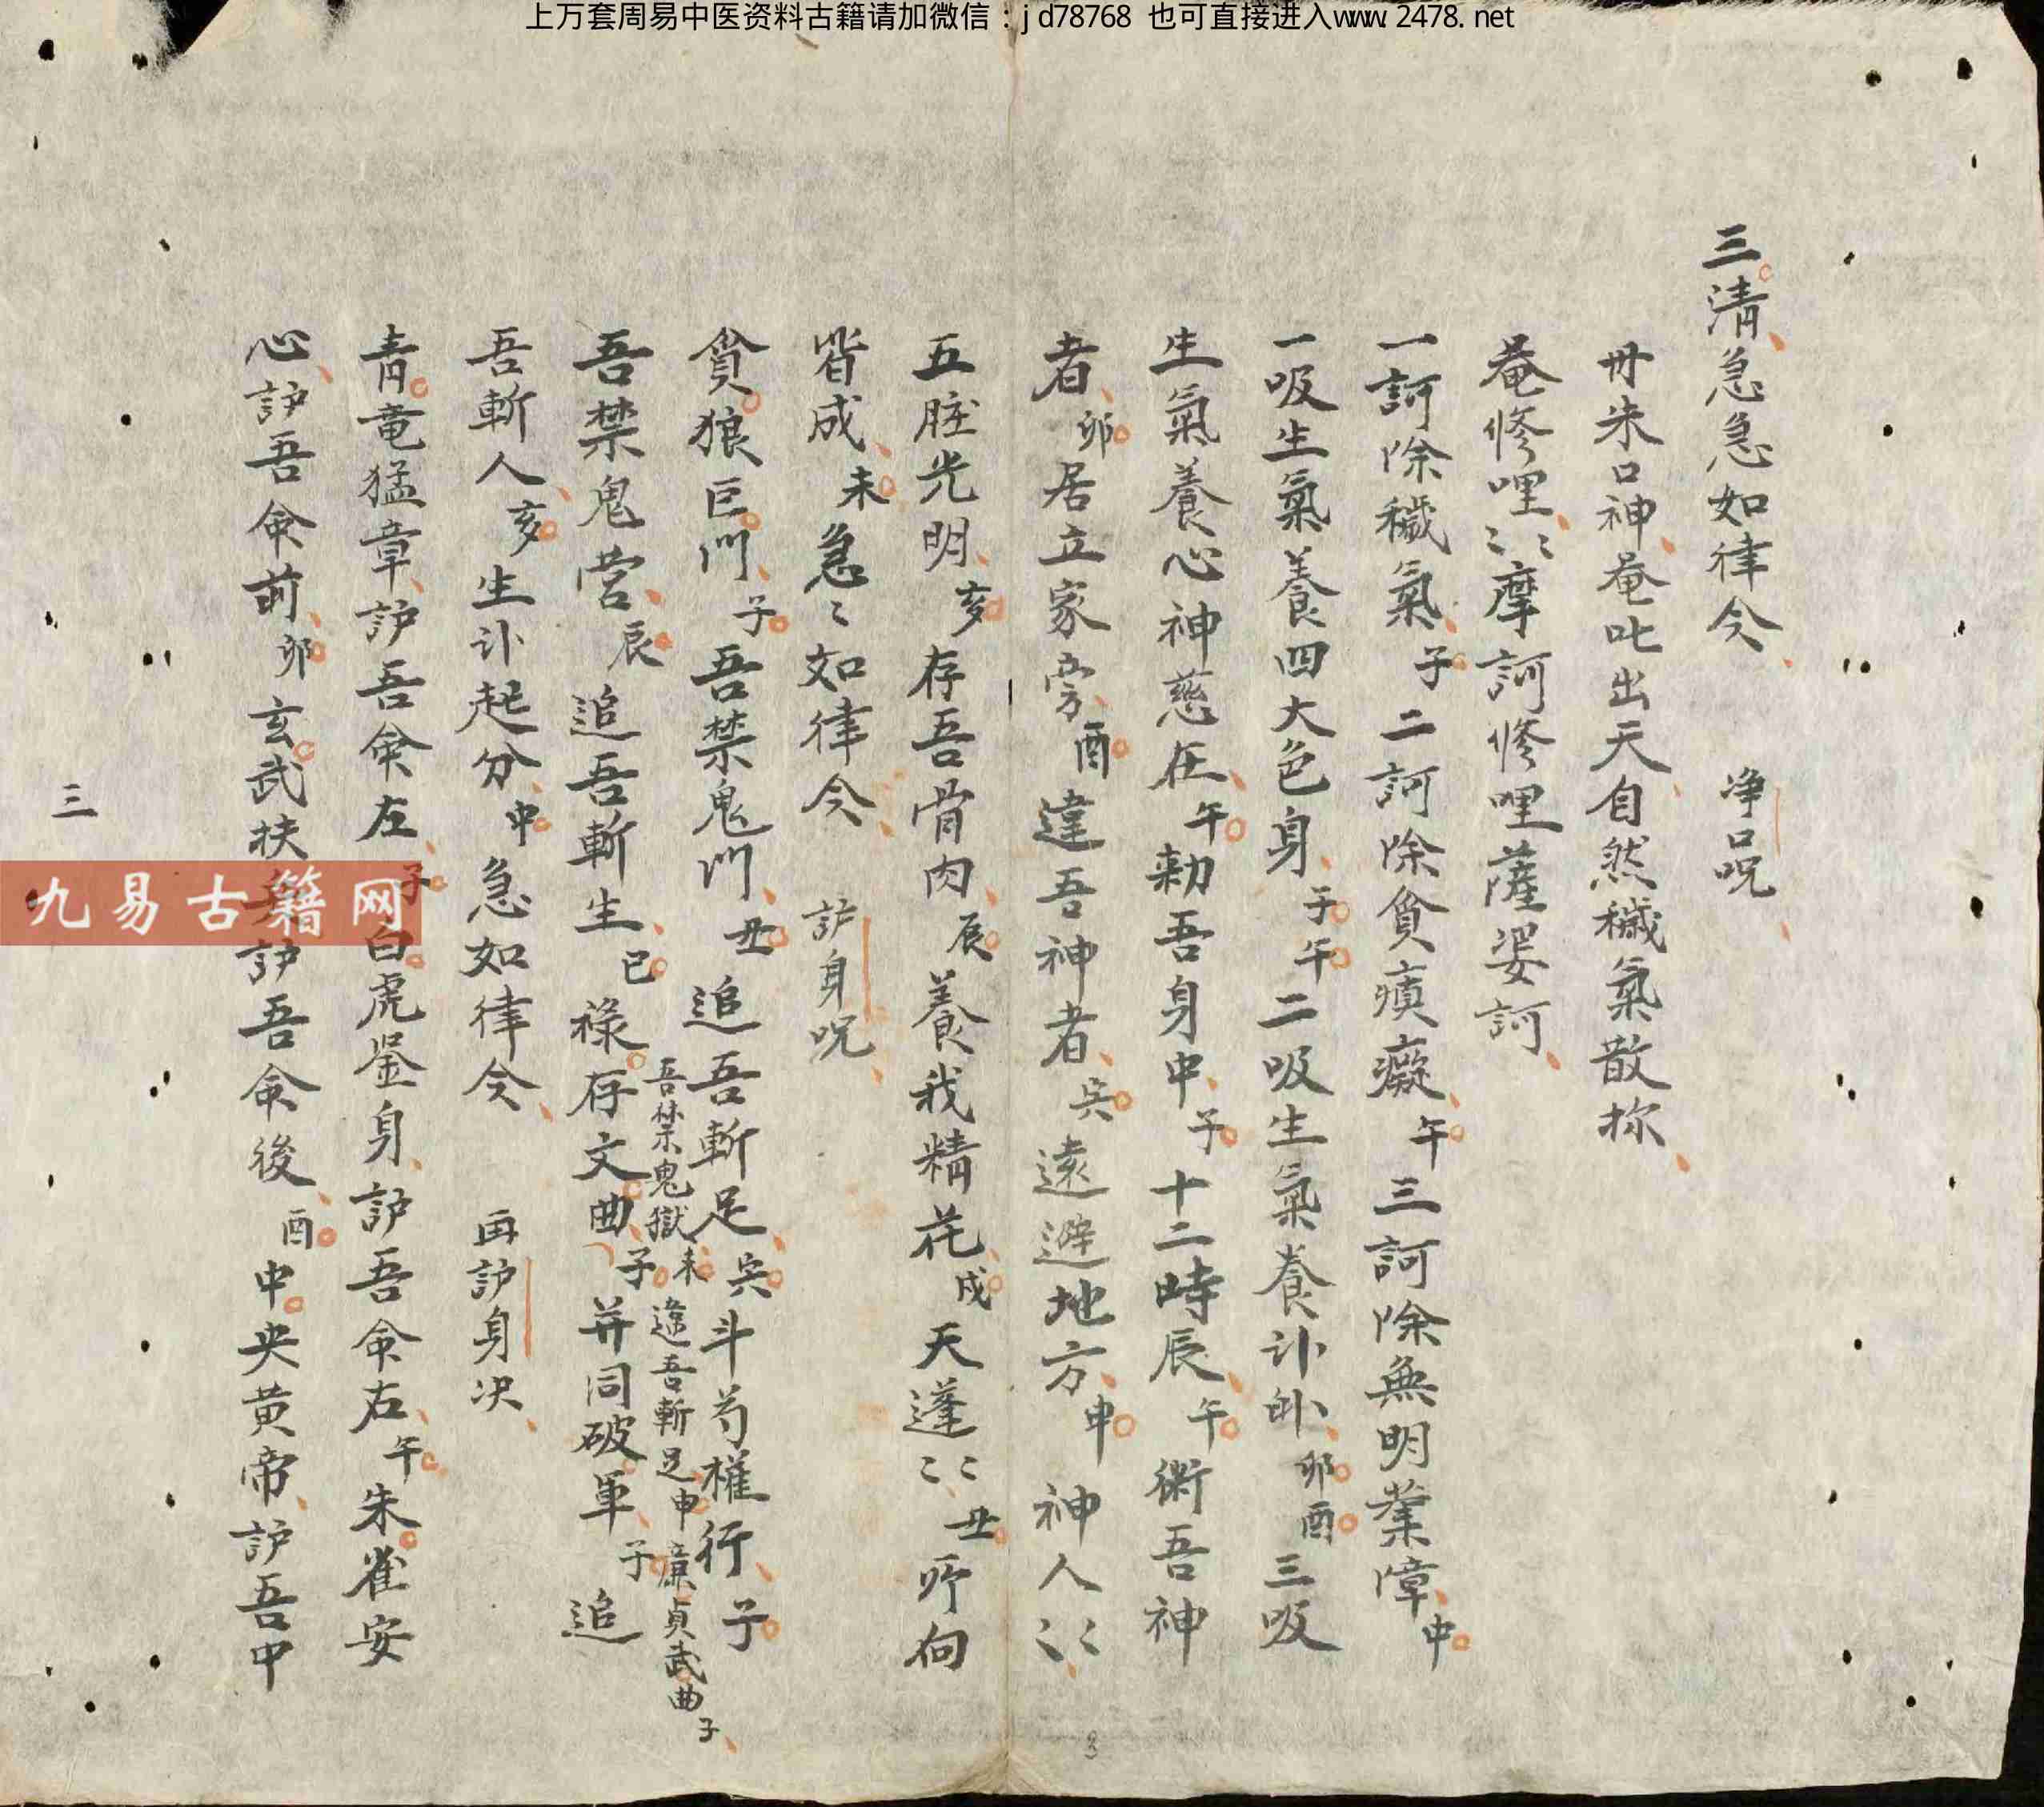 上万套周易中医资料古籍请加微信：jd78768 也可直接进入www.2478.net
三清急急如律令 净口咒
丹朱口神奄叱出天自然穢氣散祢
奄修哩〻〻摩訶修哩薩婆訶
一訶除穢氣子二訶除貪瘨癡午三訶除無明業障中
一吸生氣養四大色身子午二吸生氣養卦卧卯酉三吸
生氣養心神慈在午勅吾身中子十二時辰午衛吾神
者卯居立家旁酉違吾神者寅遠避地方申神人〻〻
五脏光明亥存吾骨肉辰養我精花戌天蓬〻〻丑所向
皆成未急〻如律令 護身咒
貪狼巨門子吾禁鬼門丑追吾斬足寅斗芍權行子
吾禁鬼獄未違吾斬足申廉貞武曲子
吾禁鬼营辰追吾斬生巳祿存文曲子并同破軍子追
吾斬人亥生卦起分中急如律令 再護身决
青竜猛章護吾命左子白虎鉴身護吾命右午朱雀安
心護吾命前卯玄武扶護吾命後酉中央黄帝護吾中
三
九易古籍网
3